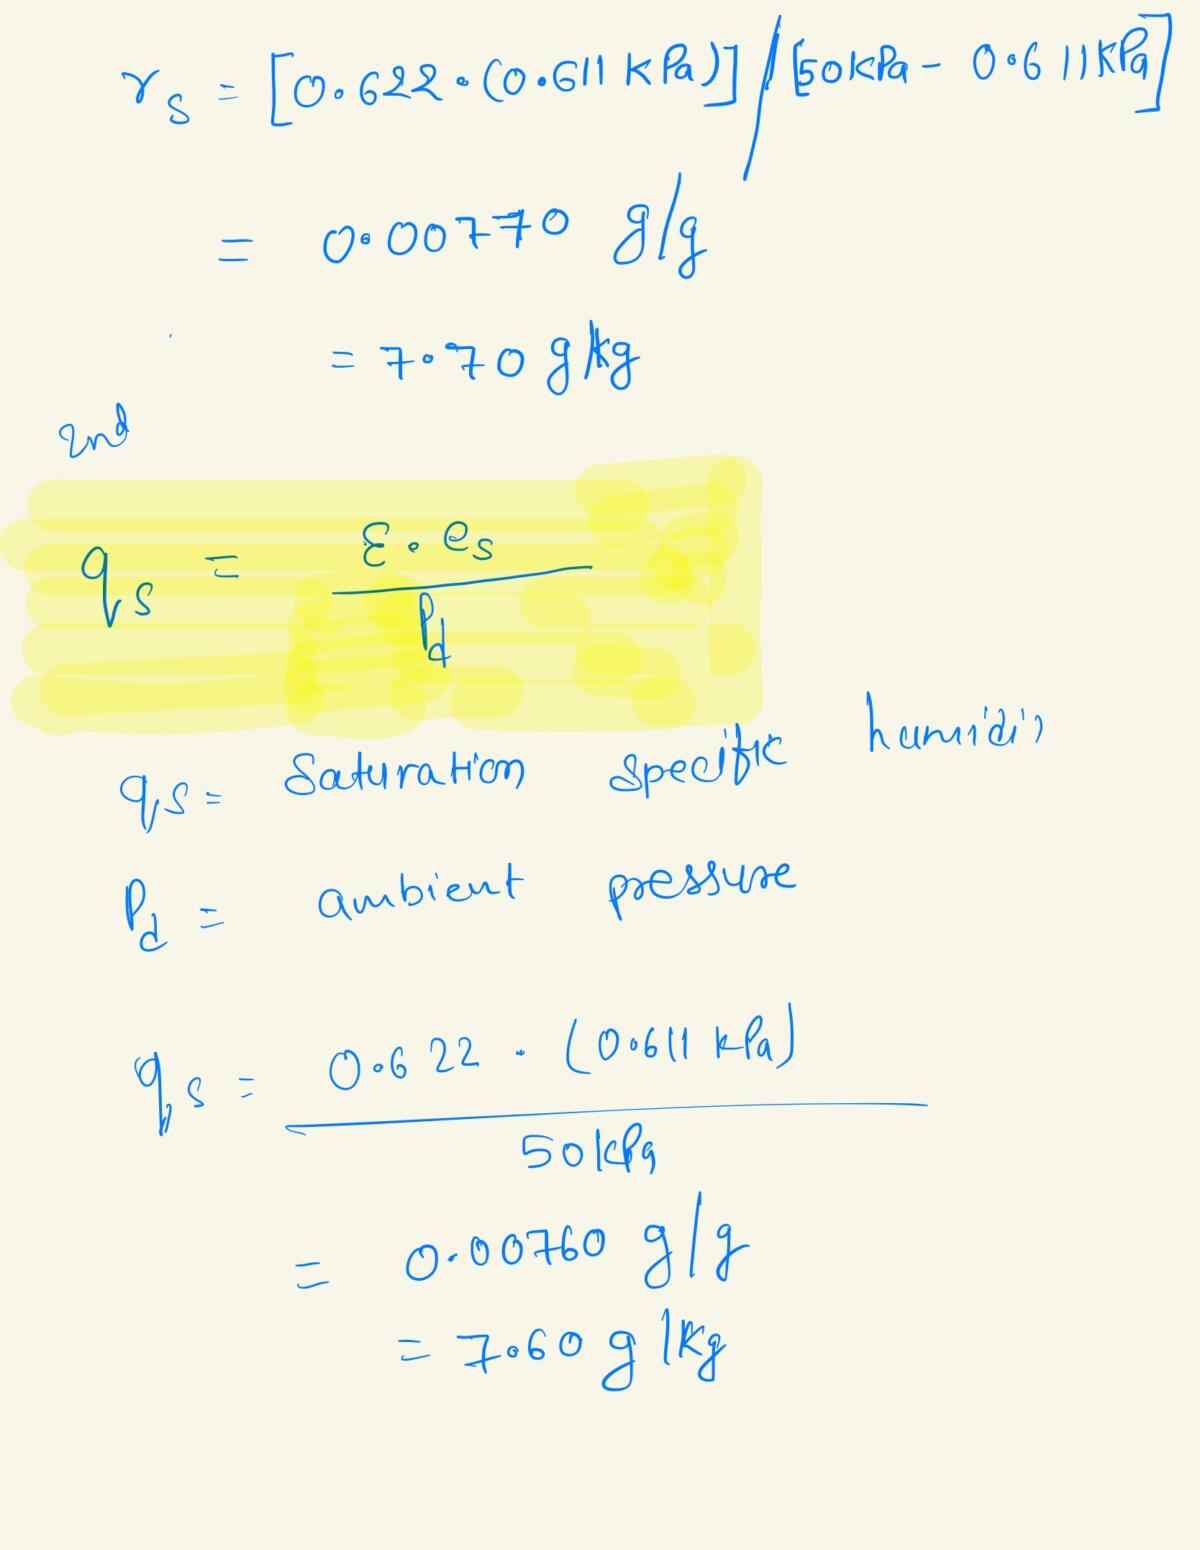 r_s = [0.622 · (0.611 kPa)] / [50kPa - 0.611kPa]
= 0.00770 g/g
= 7.70 g/kg
2nd
q_s = ε · e_s / P_d
q_s = Saturation specific
P_d = ambient pressure
q_s = 0.622 · (0.611 kPa) / 50kPa
= 0.00760 g/g
= 7.60 g/kg